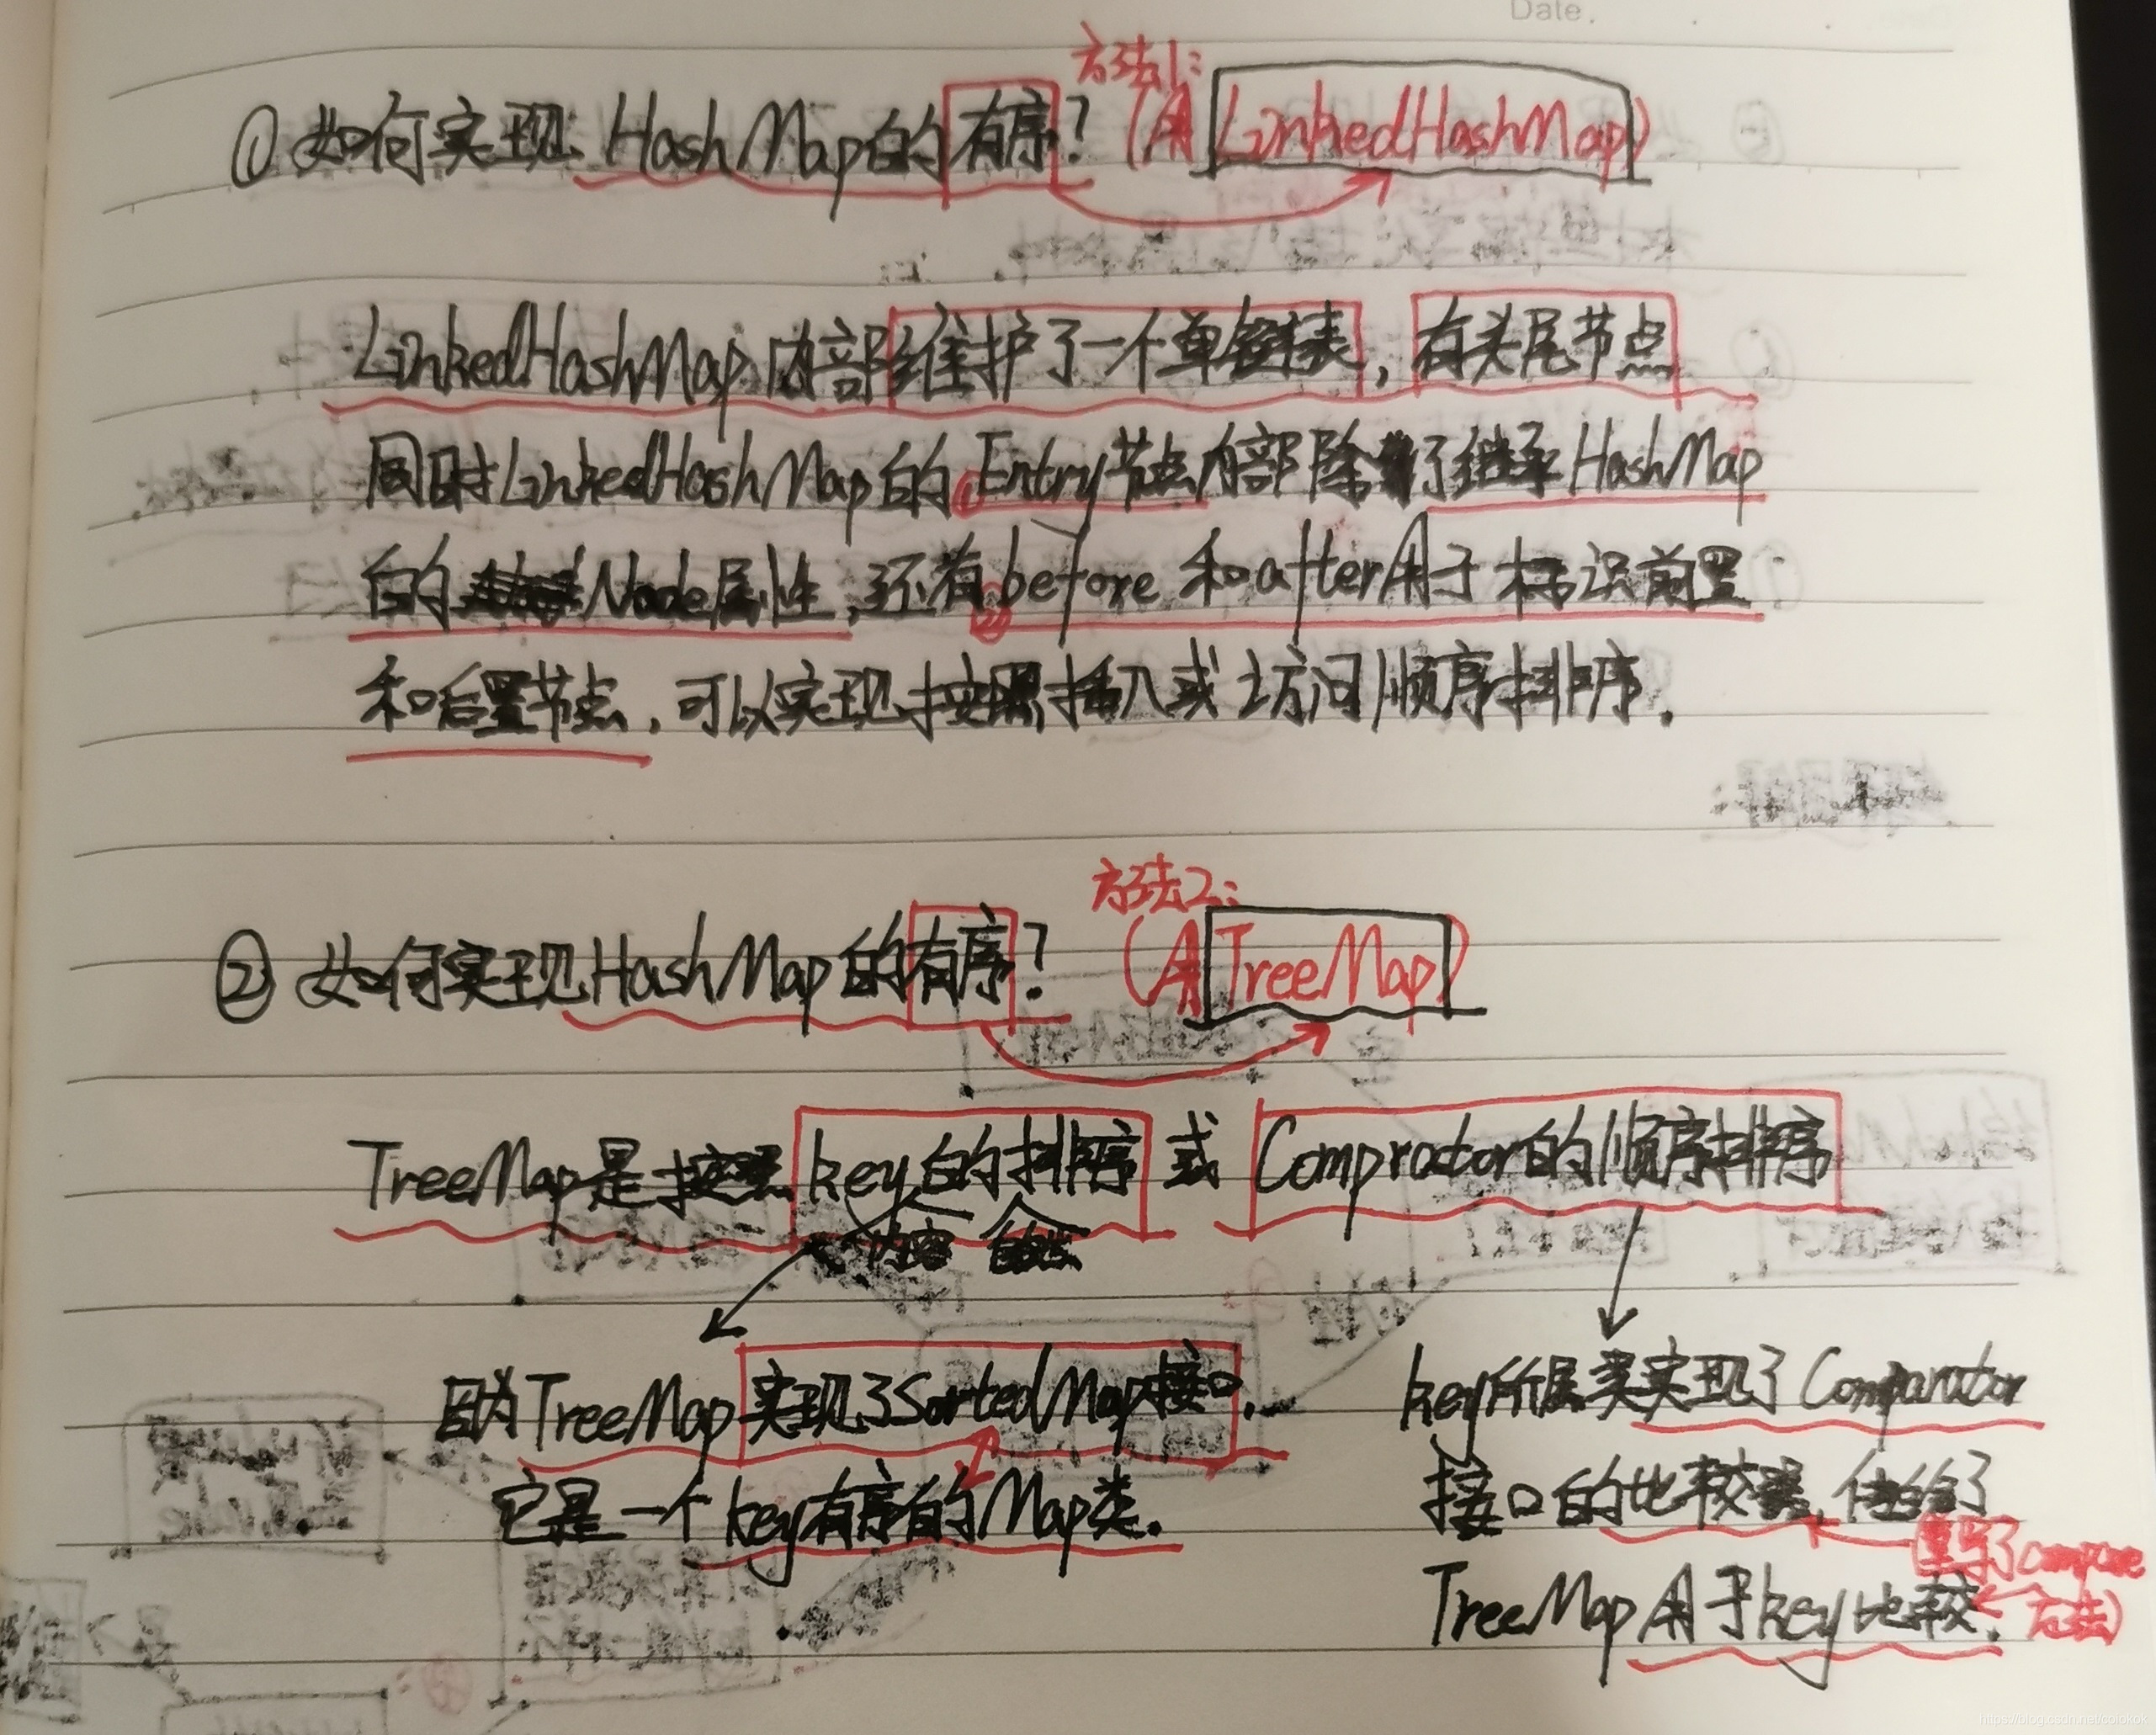 Date.
方法1:
① 如何实现 HashMap的有序? (用LinkedHashMap)
LinkedHashMap内部维护了一个单链表, 有头尾节点
同时LinkedHashMap的①Entry节点内部除了继承HashMap
的Node属性, 还有②before和after用于标识前置
和后置节点, 可以实现按照插入或访问顺序排序.
方法2:
② 如何实现HashMap的有序? (用TreeMap)
TreeMap是按照key的排序 或 Comprator的顺序排序
内容 自然
因为TreeMap实现了SortedMap接口.
它是一个key有序的Map类.
key所属类实现了Comparator
接口的比较器, 传给了
重写了compare
TreeMap用于key比较.
方法)
https://blog.csdn.net/colokok